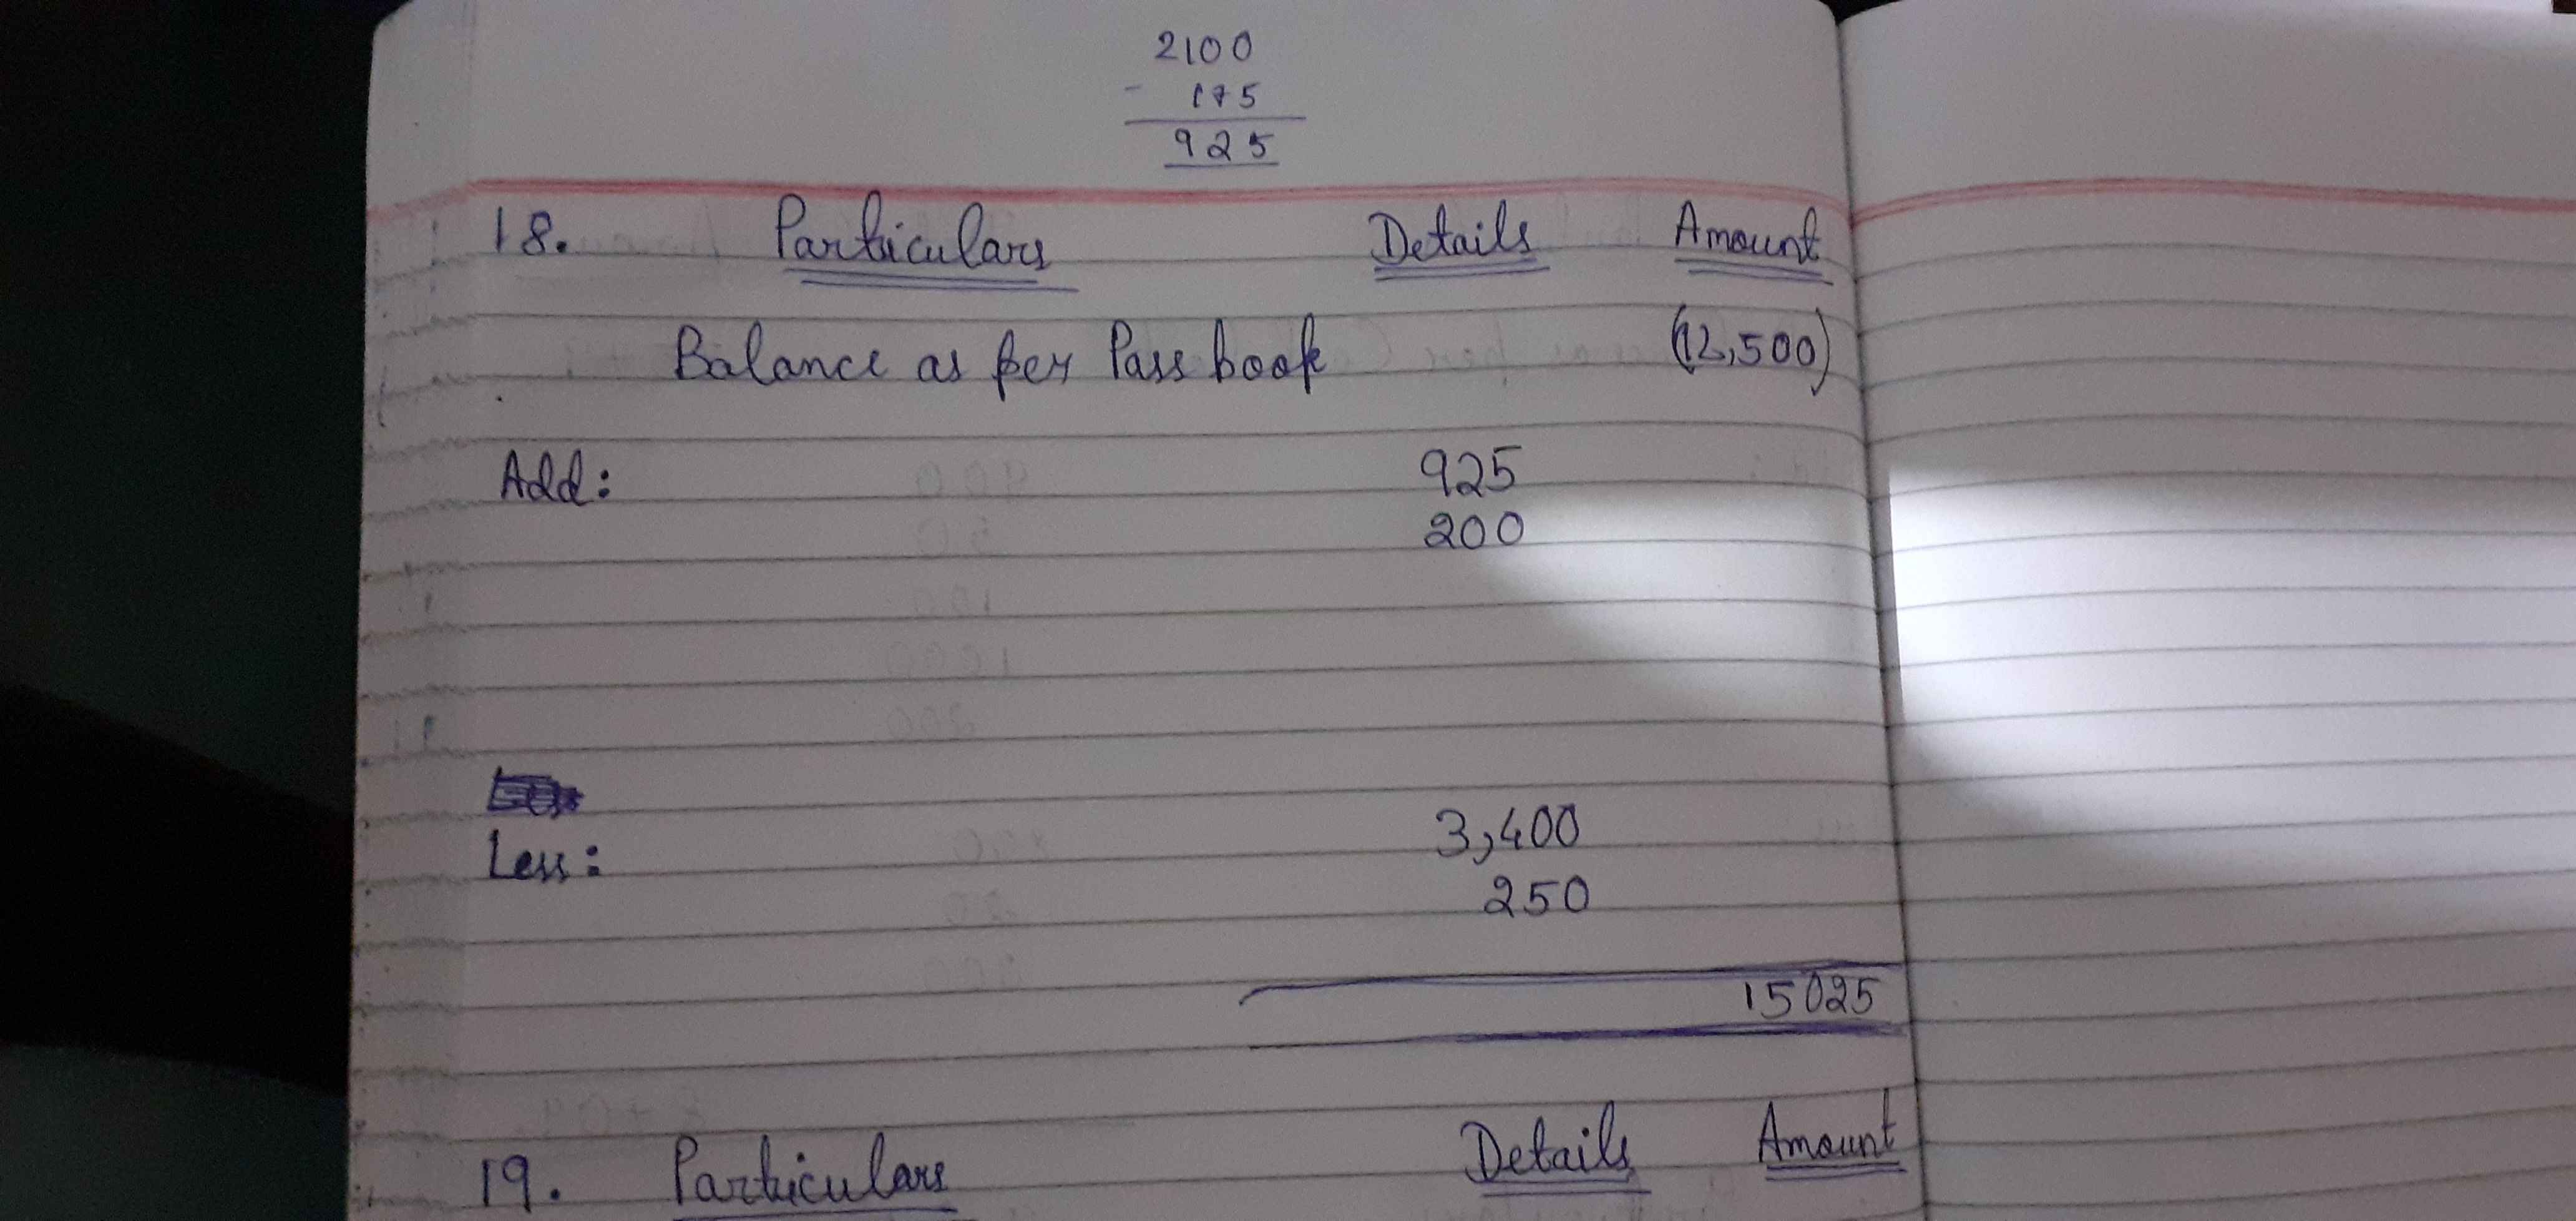 2100
- 175
925
18. Particulars Details Amount
Balance as per Pass book (12,500)
Add: 925
200
3,400
Less:
250
15025
19. Particulars Details Amount